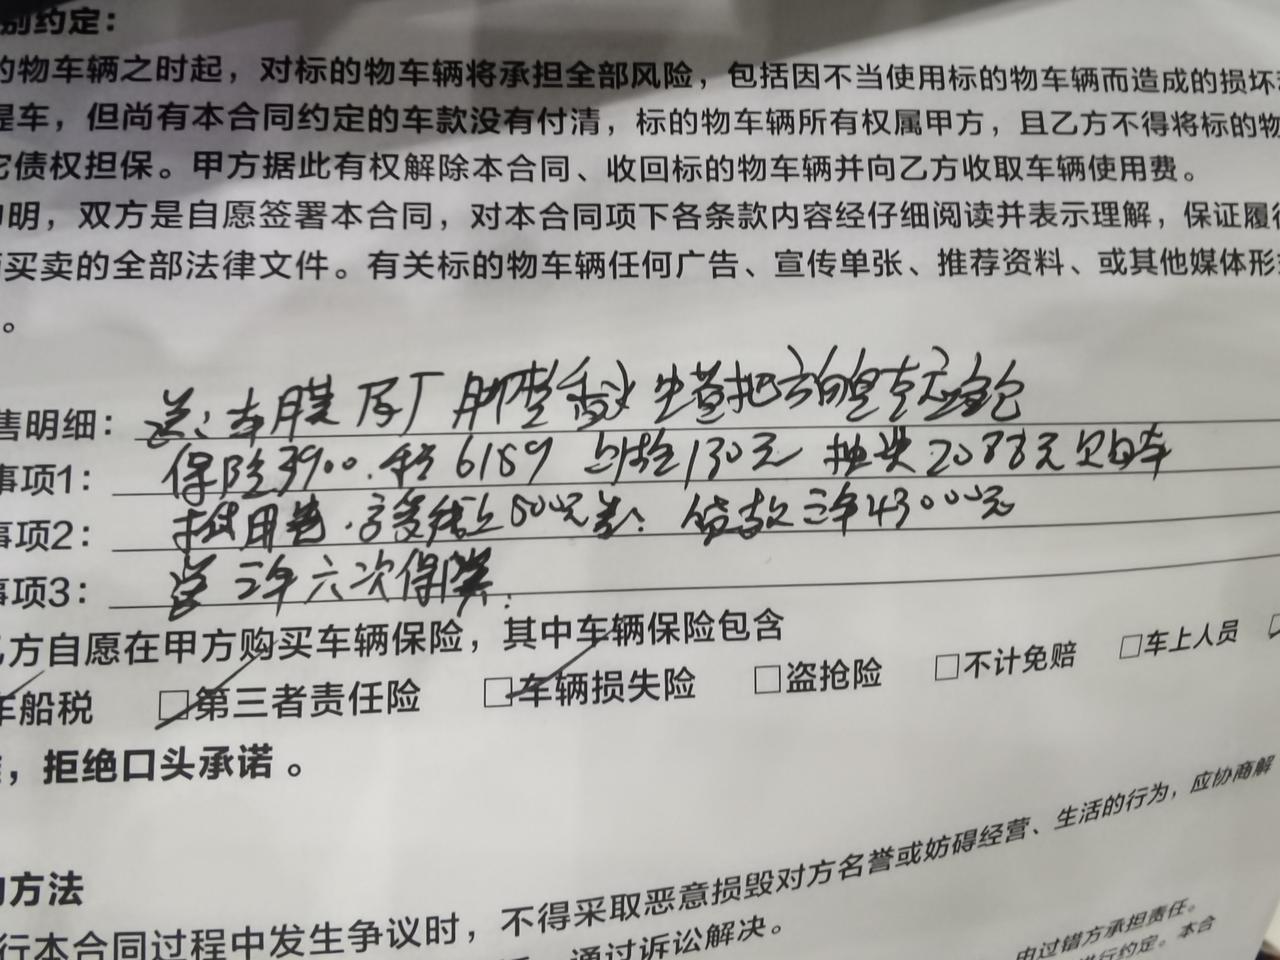 别约定：
的物车辆之时起，对标的物车辆将承担全部风险，包括因不当使用标的物车辆而造成的损坏
提车，但尚有本合同约定的车款没有付清，标的物车辆所有权属甲方，且乙方不得将标的物
它债权担保。甲方据此有权解除本合同、收回标的物车辆并向乙方收取车辆使用费。
明，双方是自愿签署本合同，对本合同项下各条款内容经仔细阅读并表示理解，保证履行
买卖的全部法律文件。有关标的物车辆任何广告、宣传单张、推荐资料、或其他媒体形式
。
售明细：送：车膜 原厂脚垫 香水
事项1：保险3900. 6189 上牌130元 2088元
事项2：费用 500元 贷款三年43000元
事项3：送三年六次保养.
乙方自愿在甲方购买车辆保险，其中车辆保险包含
车船税 □第三者责任险 □车辆损失险 □盗抢险 □不计免赔 □车上人员
，拒绝口头承诺。
的方法
行本合同过程中发生争议时，不得采取恶意损毁对方名誉或妨碍经营、生活的行为，应协商解
，通过诉讼解决。
由过错方承担责任。
进行约定。本合